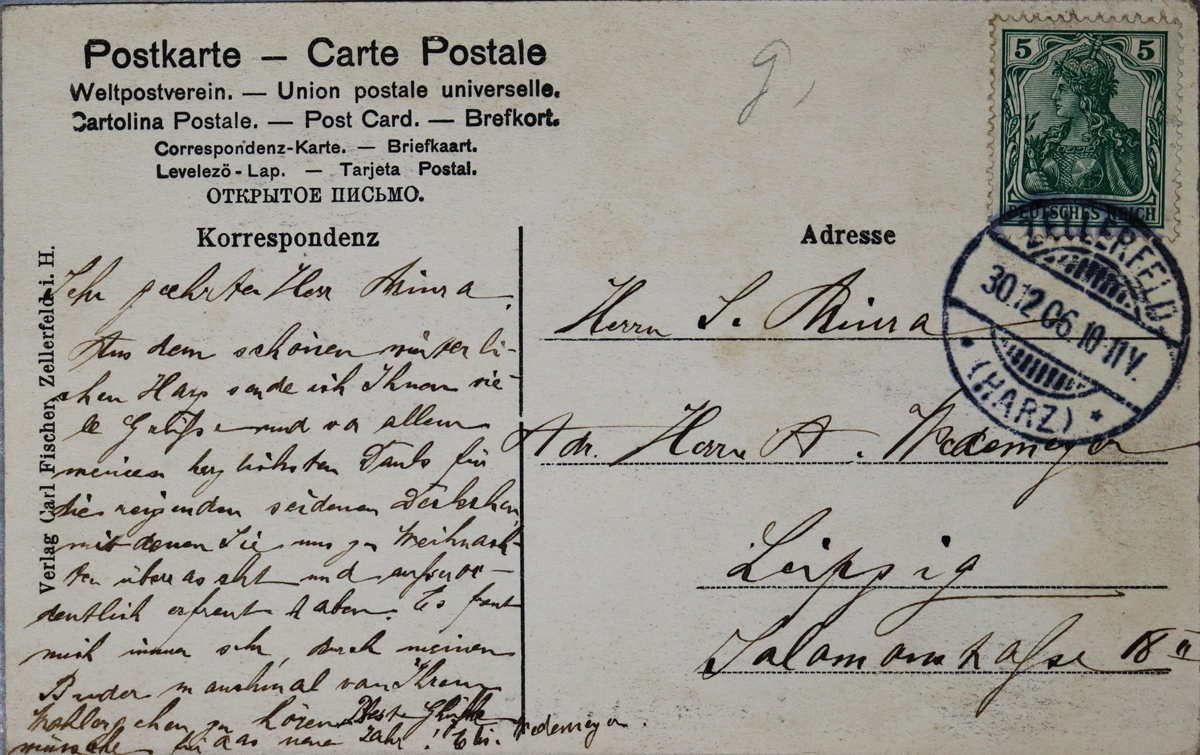 Postkarte — Carte Postale
Weltpostverein. — Union postale universelle.
Cartolina Postale. — Post Card. — Brefkort.
Correspondenz-Karte. — Briefkaart.
Levelező-Lap. — Tarjeta Postal.
ОТКРЫТОЕ ПИСЬМО.
Korrespondenz
Sehr geehrter Herr Miura.
Aus dem schönen winterli-
chen Harz sende ich Ihnen vie-
le Grüße und vor allem
meinen herzlichsten Dank für
die reizenden seidenen Deckchen,
mit denen Sie uns zu Weihnach-
ten überrascht und außeror-
dentlich erfreut haben. Es freut
mich immer sehr, durch meinen
Bruder manchmal von Ihrem
Wohlergehen zu hören. Beste Glück-
wünsche für das neue Jahr! Wedemeyer.
Verlag Carl Fischer, Zellerfeld i. H.
Adresse
Herrn S. Miura
Adr. Herrn A. Wedemeyer
Leipzig
Salomonstraße 18
5 5
DEUTSCHES REICH
ZELLERFELD
30.12.06.10-11V.
(HARZ)